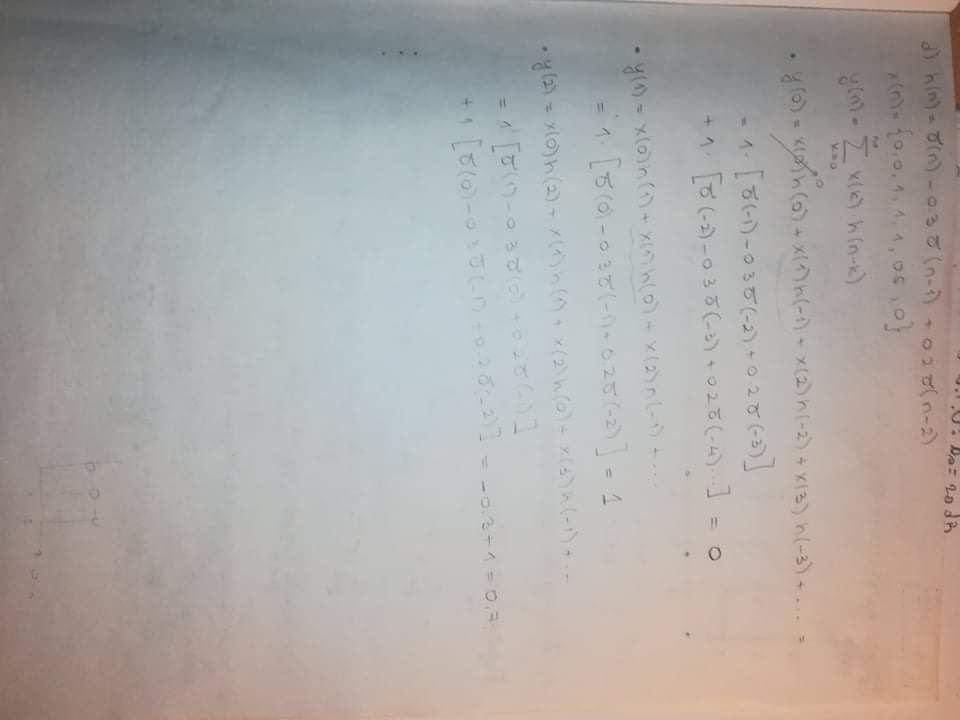 N₀ = 20 dB
d) h(n) = δ(n) - 0.3 δ(n-1) + 0.2 δ(n-2)
x(n) = {0, 0, 1, 1, 1, 0.5, 0}
y(n) = Σ x(k) h(n-k)
k=0
• y(0) = x(0)h(0) + x(1)h(-1) + x(2)h(-2) + x(3)h(-3) + ... =
= 1·[δ(-1) - 0.3δ(-2) + 0.2δ(-3)]
+ 1·[δ(-2) - 0.3δ(-3) + 0.2δ(-4)...] = 0
• y(1) = x(0)h(1) + x(1)h(0) + x(2)h(-1) + ...
= 1·[δ(0) - 0.3δ(-1) + 0.2δ(-2)] = 1
• y(2) = x(0)h(2) + x(1)h(1) + x(2)h(0) + x(3)h(-1) + ...
= 1[δ(1) - 0.3δ(0) + 0.2δ(-1)]
+ 1[δ(0) - 0.3δ(-1) + 0.2δ(-2)] = -0.3 + 1 = 0.7